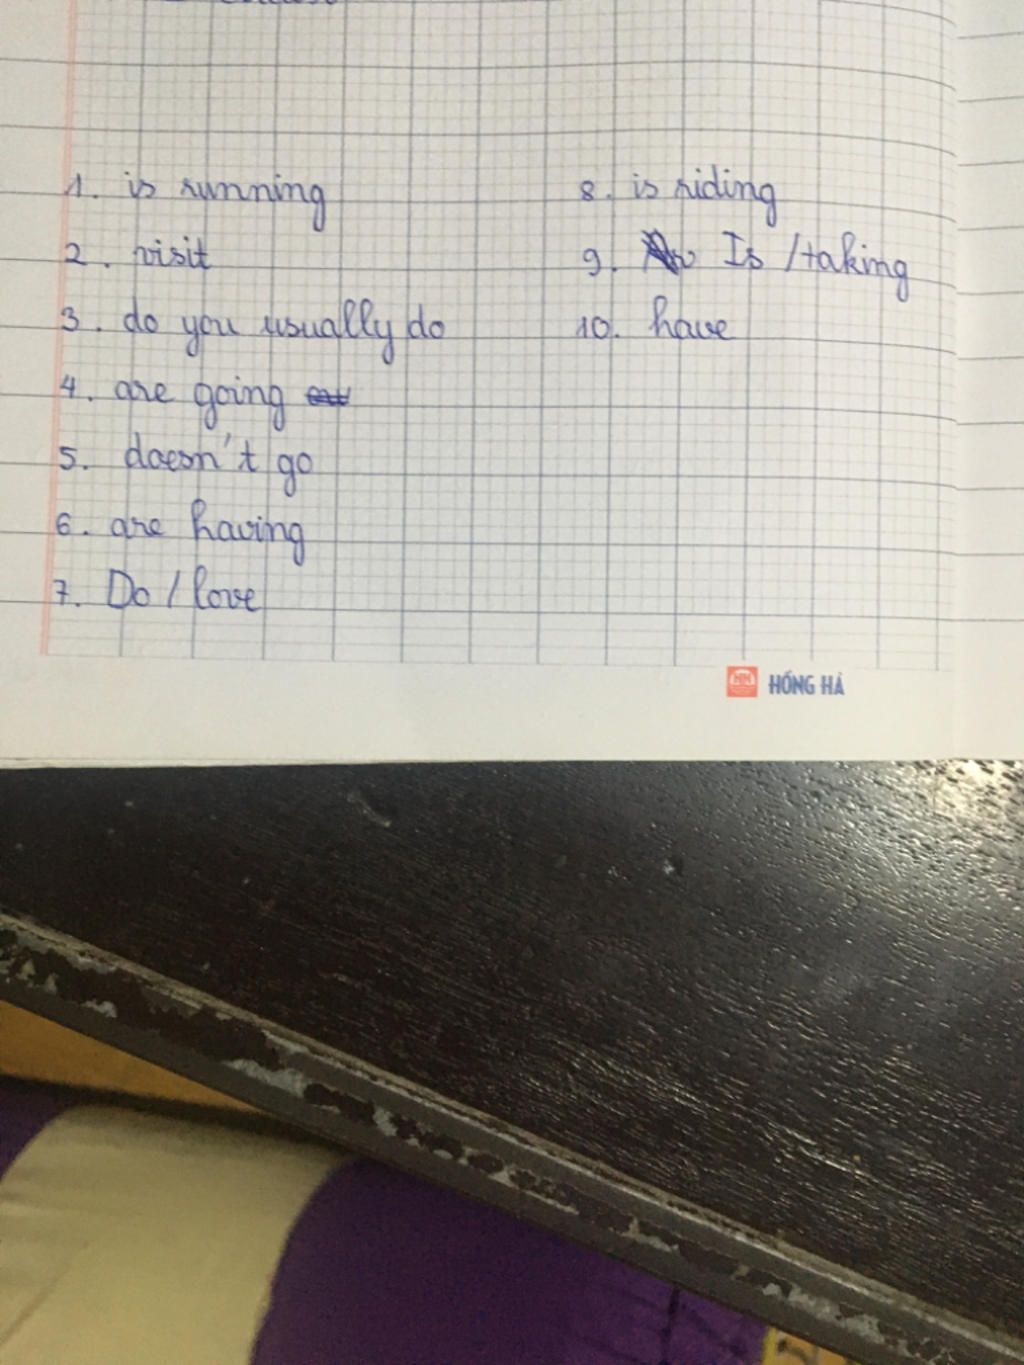 1. is running
2. visit
3. do you usually do
4. are going
5. doesn't go
6. are having
7. Do / love
8. is riding
9. Is / taking
10. have
HỒNG HÀ